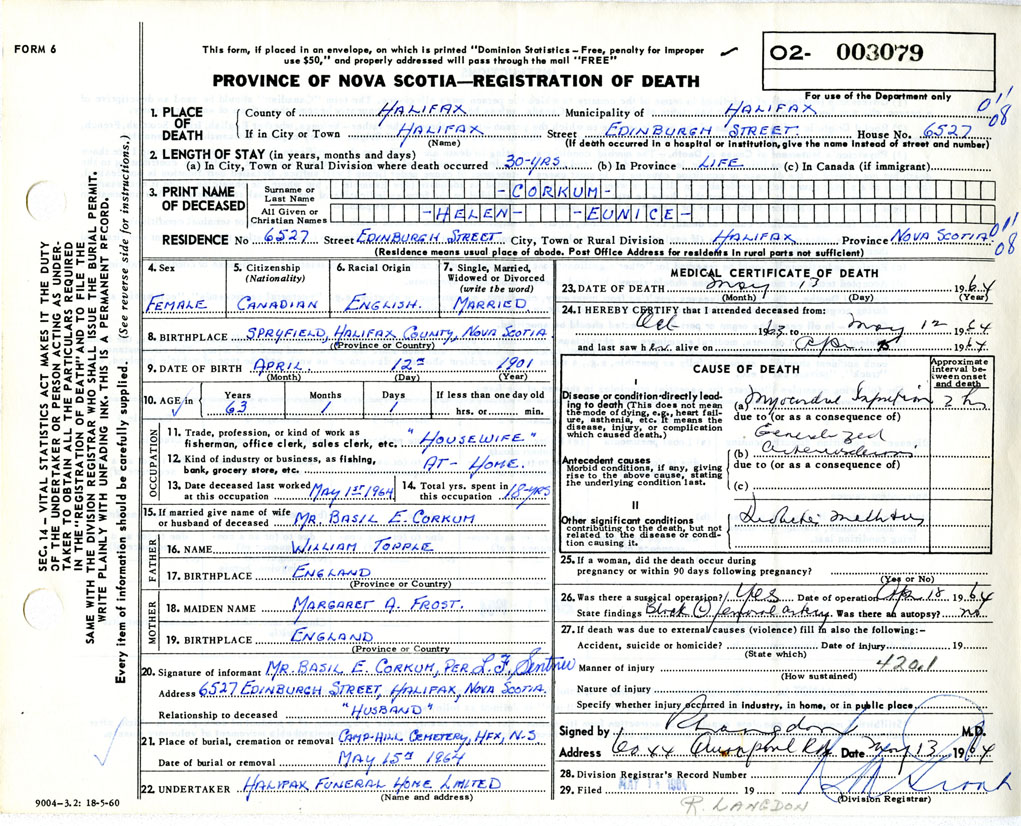 FORM 6
This form, if placed in an envelope, on which is printed "Dominion Statistics – Free, penalty for improper
use $50," and properly addressed will pass through the mail "FREE"
O2- 003079
PROVINCE OF NOVA SCOTIA—REGISTRATION OF DEATH
For use of the Department only
011
08
1. PLACE OF DEATH
County of HALIFAX Municipality of HALIFAX
If in City or Town HALIFAX Street EDINBURGH STREET. House No. 6527
(Name) (If death occurred in a hospital or institution, give the name instead of street and number)
2. LENGTH OF STAY (in years, months and days)
(a) In City, Town or Rural Division where death occurred 30-YRS (b) In Province LIFE (c) In Canada (if immigrant)
3. PRINT NAME OF DECEASED
Surname or Last Name -CORKUM-
All Given or Christian Names -HELEN- -EUNICE-
RESIDENCE No 6527 Street EDINBURGH STREET City, Town or Rural Division HALIFAX Province NOVA SCOTIA
011
08
(Residence means usual place of abode. Post Office Address for residents in rural parts not sufficient)
4. Sex
FEMALE
5. Citizenship
(Nationality)
CANADIAN
6. Racial Origin
ENGLISH.
7. Single, Married, Widowed or Divorced
(write the word)
MARRIED
8. BIRTHPLACE SPRYFIELD, HALIFAX COUNTY, NOVA SCOTIA
(Province or Country)
9. DATE OF BIRTH APRIL 12 1901
(Month) (Day) (Year)
10. AGE in Years Months Days If less than one day old
63 1 1 hrs. or min.
OCCUPATION
11. Trade, profession, or kind of work as
fisherman, office clerk, sales clerk, etc. "HOUSEWIFE"
12. Kind of industry or business, as fishing,
bank, grocery store, etc. AT- HOME.
13. Date deceased last worked at this occupation MAY 1ST 1964
14. Total yrs. spent in this occupation 18-YRS
15. If married give name of wife
or husband of deceased MR. BASIL E. CORKUM
FATHER
16. NAME WILLIAM TOPPLE
17. BIRTHPLACE ENGLAND
(Province or Country)
MOTHER
18. MAIDEN NAME MARGARET A. FROST.
19. BIRTHPLACE ENGLAND
(Province or Country)
20. Signature of informant MR. BASIL E. CORKUM, PER L.F.
Address 6527 EDINBURGH STREET, HALIFAX, NOVA SCOTIA.
Relationship to deceased "HUSBAND"
21. Place of burial, cremation or removal CAMP-HILL CEMETERY, HFX, N.S
Date of burial or removal MAY 15TH 1964
22. UNDERTAKER HALIFAX FUNERAL HOME LIMITED
(Name and address)
9004–3.2: 18-5-60
MEDICAL CERTIFICATE OF DEATH
23. DATE OF DEATH May 13 1964
(Month) (Day) (Year)
24. I HEREBY CERTIFY that I attended deceased from:
Oct 1953 to May 12 1964
and last saw her alive on 1964
CAUSE OF DEATH
Approximate interval between onset and death
I
Disease or condition directly leading to death (This does not mean the mode of dying, e.g., heart failure, asthenia, etc. It means the disease, injury, or complication which caused death.)
(a) 2 hrs
due to (or as a consequence of)
Antecedent causes
Morbid conditions, if any, giving rise to the above cause, stating the underlying condition last.
Generalized
(b)
due to (or as a consequence of)
(c)
II
Other significant conditions
contributing to the death, but not related to the disease or condition causing it.
Diabetes Mellitus
25. If a woman, did the death occur during
pregnancy or within 90 days following pregnancy?
(Yes or No)
26. Was there a surgical operation? Yes Date of operation Apr 18 1964
State findings Block (L) femoral artery Was there an autopsy? no
27. If death was due to external causes (violence) fill in also the following:–
Accident, suicide or homicide? Date of injury 19
(State which)
Manner of injury 420.1
(How sustained)
Nature of injury
Specify whether injury occurred in industry, in home, or in public place
Signed by R Langdon M.D.
Address Date May 13 1964
28. Division Registrar's Record Number
29. Filed 19
(Division Registrar)
R. LANGDON
SEC. 14 – VITAL STATISTICS ACT MAKES IT THE DUTY
OF THE UNDERTAKER OR PERSON ACTING AS UNDERTAKER TO OBTAIN ALL THE PARTICULARS REQUIRED
IN THE "REGISTRATION OF DEATH" AND TO FILE THE
SAME WITH THE DIVISION REGISTRAR WHO SHALL ISSUE THE BURIAL PERMIT.
WRITE PLAINLY WITH UNFADING INK. THIS IS A PERMANENT RECORD.
Every item of information should be carefully supplied. (See reverse side for instructions.)